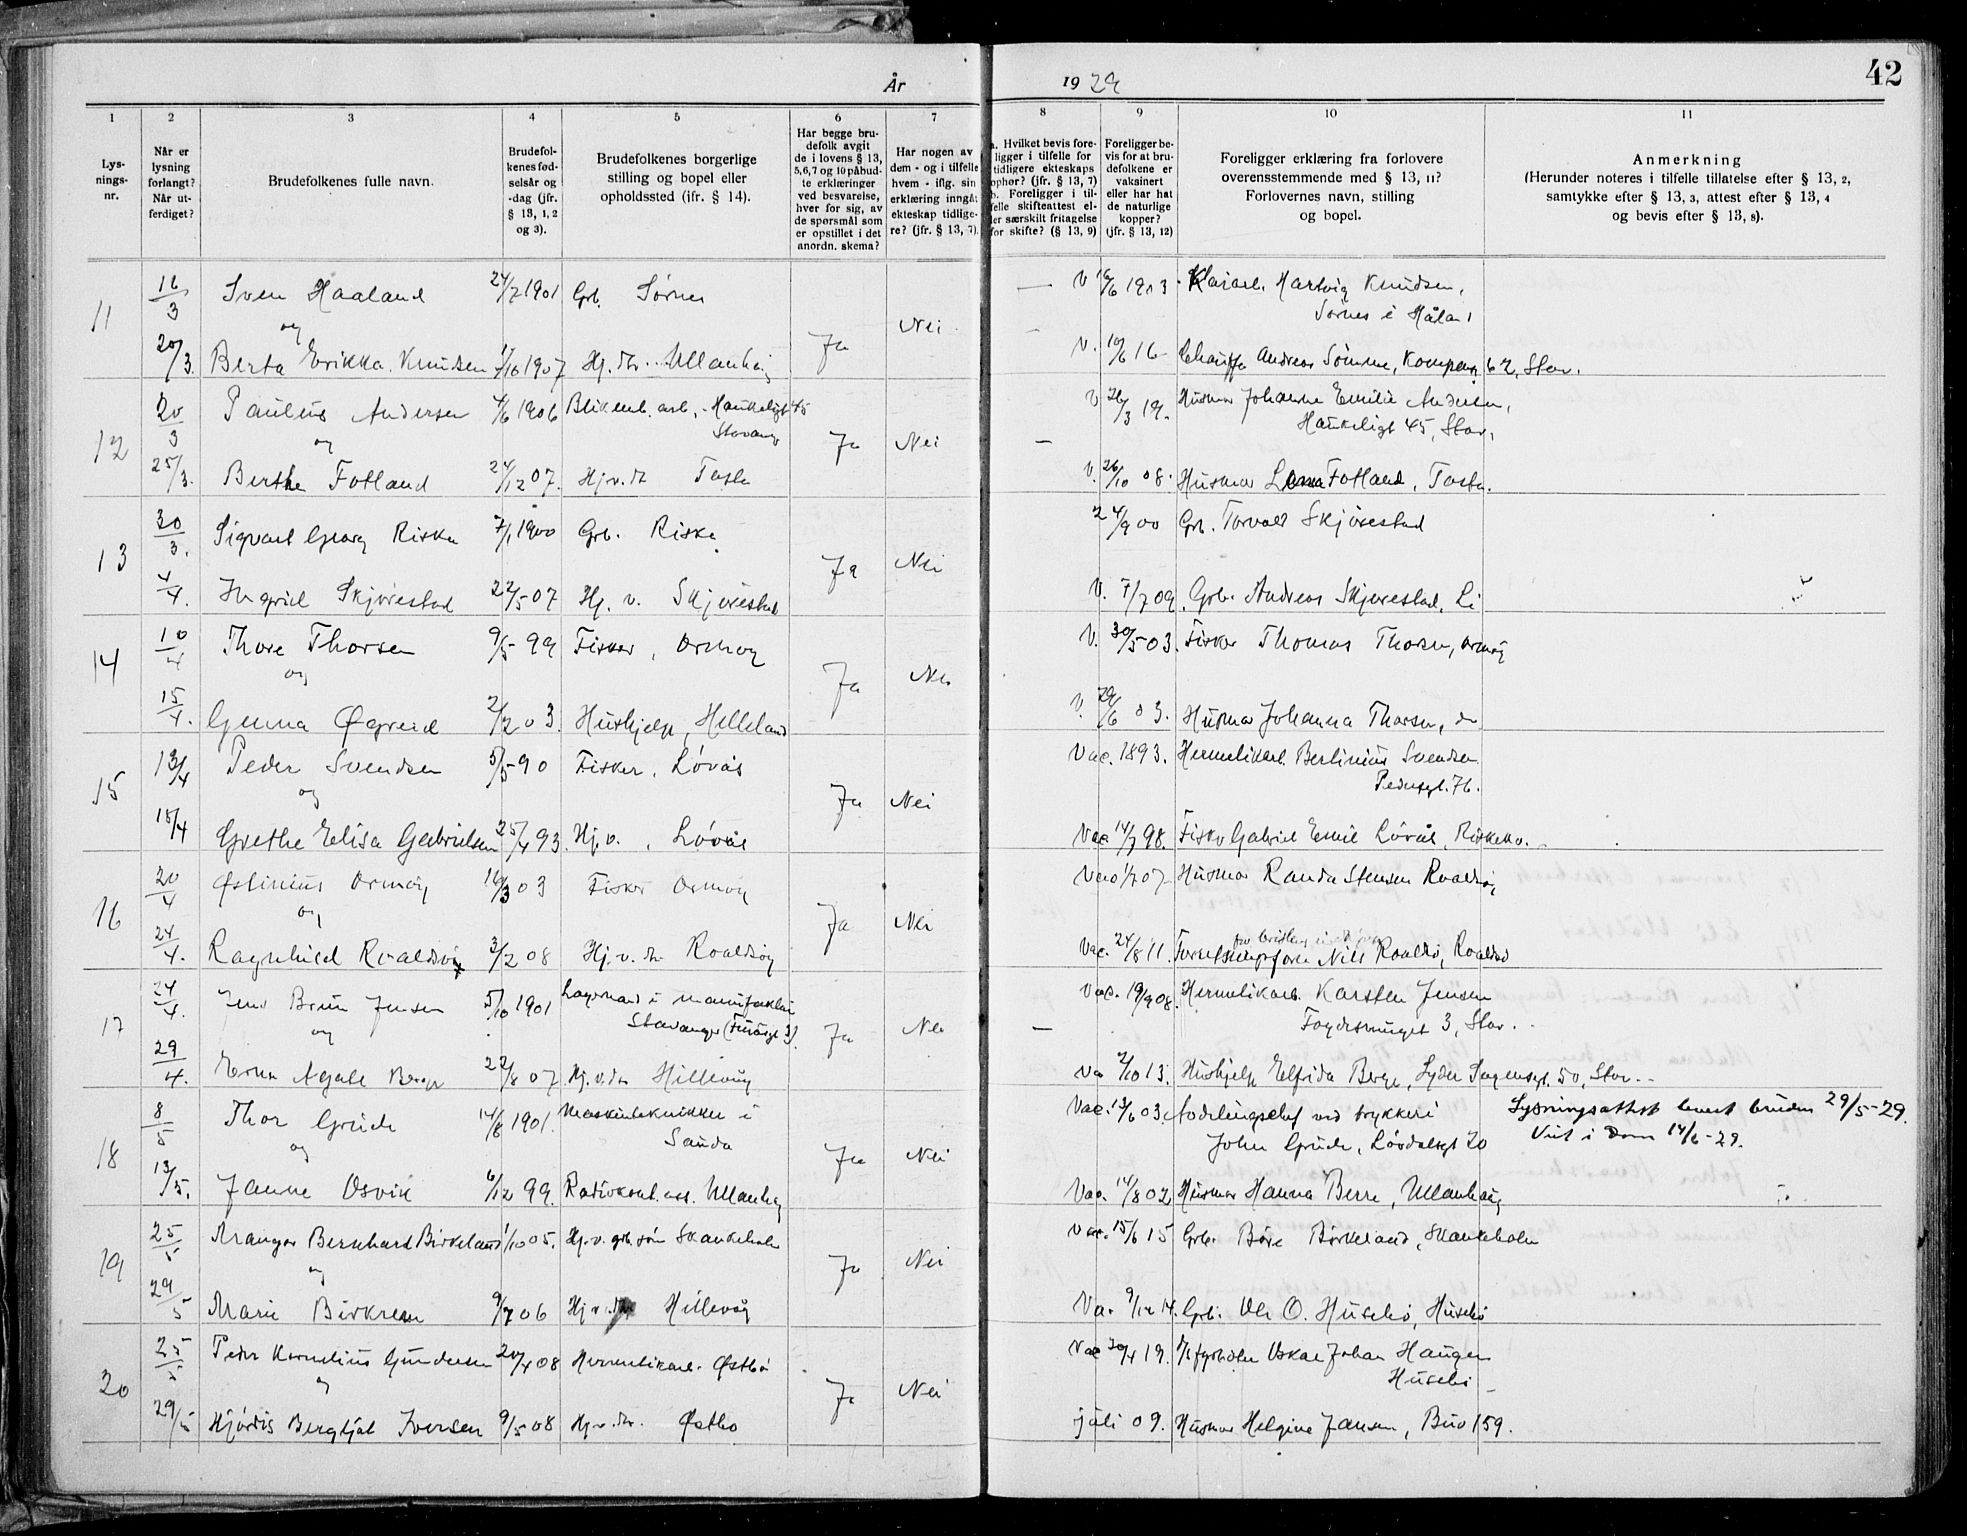 År 1929
42
1 2 3 4 5 6 7 8 9 10 11
Lysningsnr.
Når er lysning forlangt? Når utferdiget?
Brudefolkenes fulle navn.
Brudefolkenes fødselsår og -dag (jfr. § 13, 1, 2 og 3).
Brudefolkenes borgerlige stilling og bopel eller opholdssted (jfr. § 14).
Har begge brudefolk avgit de i lovens § 13, 5,6,7 og 10 påbudte erklæringer ved besvarelse, hver for sig, av de spørsmål som er opstillet i det anordn. skema?
Har nogen av dem - og i tilfelle hvem - iflg. sin erklæring inngåt ekteskap tidligere? (jfr. § 13, 7).
a. Hvilket bevis foreligger i tilfelle for tidligere ekteskaps ophør? (jfr. § 13, 7) b. Foreligger i tilfelle skifteattest eller særskilt fritagelse for skifte? (§ 13, 9)
Foreligger bevis for at brudefolkene er vaksinert eller har hat de naturlige kopper? (jfr. § 13, 12)
Foreligger erklæring fra forlovere overensstemmende med § 13, 11? Forlovernes navn, stilling og bopel.
Anmerkning (Herunder noteres i tilfelle tillatelse efter § 13, 2, samtykke efter § 13, 3, attest efter § 13, 4 og bevis efter § 13, 8).
11 16/3 Sven Haaland 24/7 1901 Grb. Sørnes — V 16/6 1913 Hartvig Knudsen,
og Ja Nei Sørnes i Håland
20/3. Berta Erikka Knudsen 1/10 1907 Hj. dtr. Ullanhaug — V. 10/6 16 Andreas Sømme, 62, Stav.
12 20/3 Paulus Andersen 4/6 1906 Blikemb. arb. Haukeligt 45 V 26/3 19. Husmor Johanne Emilie Andersen,
og Stavang Ja Nei — Haukeligt 45, Stav.
25/3. Berthe Fotland 24/12 07. Hj. v. dt Tasta V. 26/10 08. Husmor Lena Fotland, Tasta.
13 30/3. Sigvart Georg Riska 7/1 1900 Grb. Riska 24/9 00 Grb. Torvald Skjørestad
Ja Nei
4/4. Ingrid Skjørestad 22/5 07 Hj. v. Skjørestad V. 7/7 09. Grb. Andreas Skjørestad, Li
14 10/4 Thore Thorsen 9/5 99 Fisker, Ormøy V. 30/5 03. Fisker Thomas Thorsen, Ormøy
og Ja Nei
15/4. Gunna Øgreid 2/2 03. Hushjelp, Helleland V. 29/6 03. Husmor Johanna Thorsen, do
15 13/4 Peder Svendsen 5/5 90 Fisker, Løvås Vac. 1893. Hermetikarb. Berlinius Svendsen
og Ja Nei Pedersgt. 76.
18/4 Grethe Elisa Gabrielsen 25/4 93. Hj. v., Løvås Vac 14/7 98. Fisker Gabriel Emil Løvås,
16 20/4 Østinius Ormøy 16/3 03 Fisker Ormøy Vac 1/7 07 Husmor Randa Stensen Roaldsøy
og Ja Nei
24/4. Ragnhild Roaldsøy 3/2 08 Hj. v. dtr. Roaldsøy Vac. 24/8 11. Nils Roaldsø, Roaldsø
17 24/4. Jens Brun Jensen 5/10 1901 Lagermand i manufaktur Vac. 19/9 08. Hermetikarb. Karsten Jensen
og Stavanger Ja Nei — 3, Stav.
29/4. Erna Agate Berge 22/8 07 Hj. v. dtr. Hillevåg Va 2/10 13. Hushjelp Elfrida Berge, Lyder Sagensgt. 50, Stav.
18 8/5 Thor Grude 14/8 1901. Maskintekniker i Vac. 13/6 03. Avdelingschef ved trykkeri Lysningsattest levert bruden 29/5-29.
og Sauda Ja Nei John Grude, Løvdalsgt 20 Viet i Dom 14/6-29.
13/5. Janne Osvik 6/12 99. Ullanhaug Vac. 14/8 02 Husmor Hanna Berre, Ullanhaug
19 25/5 Mangor Bernhard Birkeland 1/10 05. Hj. v. grb. søn Skankeholen Vac. 15/6 15 Grb. Børe Birkeland, Skankeholen
og Ja Nei
29/5 Marie Birkrem 9/7 06 Hj. v. dtr. Hillevåg Va. 9/12 14. Grb. Ole O. Husebø, Husebø
20 25/5 Peder Kornelius Gundersen 20/4 08 Hermetikarb. Østbø Vac 30/4 19. Oskar Johan Haugen
og Ja Nei Husebø
29/5 Hjørdis Bergljot Iversen 9/5 08 Hj. v. dtr. Østbø juli 09. Husmor Helgine Jansen, Buø 159.